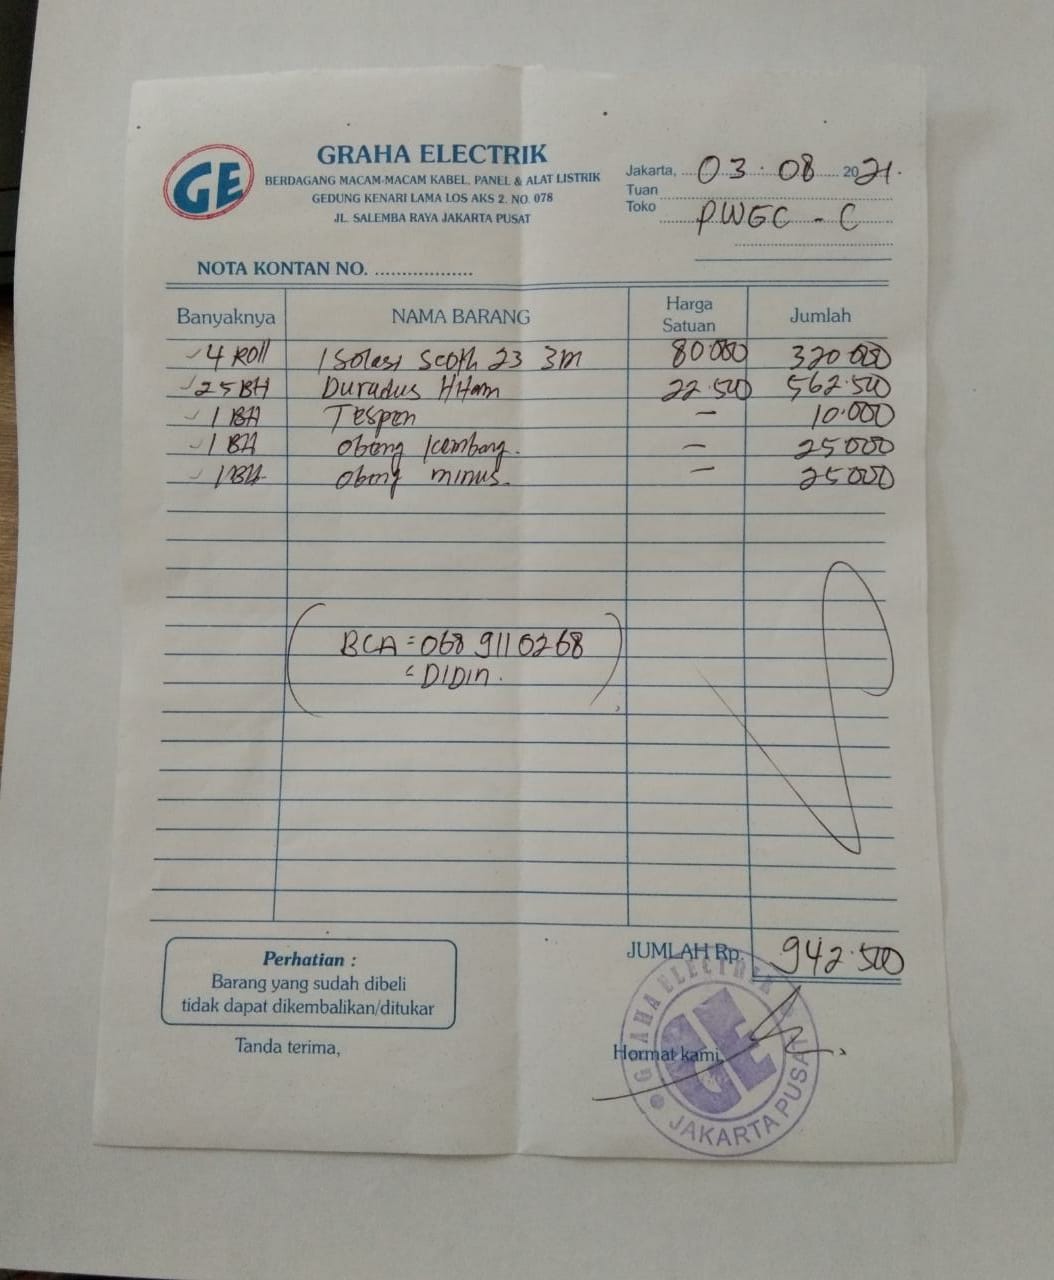 GE
GRAHA ELECTRIK
BERDAGANG MACAM-MACAM KABEL, PANEL & ALAT LISTRIK
GEDUNG KENARI LAMA LOS AKS 2. NO. 078
JL. SALEMBA RAYA JAKARTA PUSAT
Jakarta, 03 · 08 2021.
Tuan
Toko PWGC - C
NOTA KONTAN NO. ..................
Banyaknya NAMA BARANG Harga Satuan Jumlah
4 Roll Isolasi Scoth 23 3M 80 000 320 000
25 BH Duradus HHam 22.500 562.500
1 BH Tespen - 10.000
1 BH obeng kembang. - 25 000
1 BH obeng minus. - 25 000
BCA = 068 911 0268
= DIDIn.
JUMLAH Rp. 942.500
Perhatian :
Barang yang sudah dibeli
tidak dapat dikembalikan/ditukar
Tanda terima,
Hormat kami,
GRAHA ELECTRIK
GE
JAKARTA PUSAT